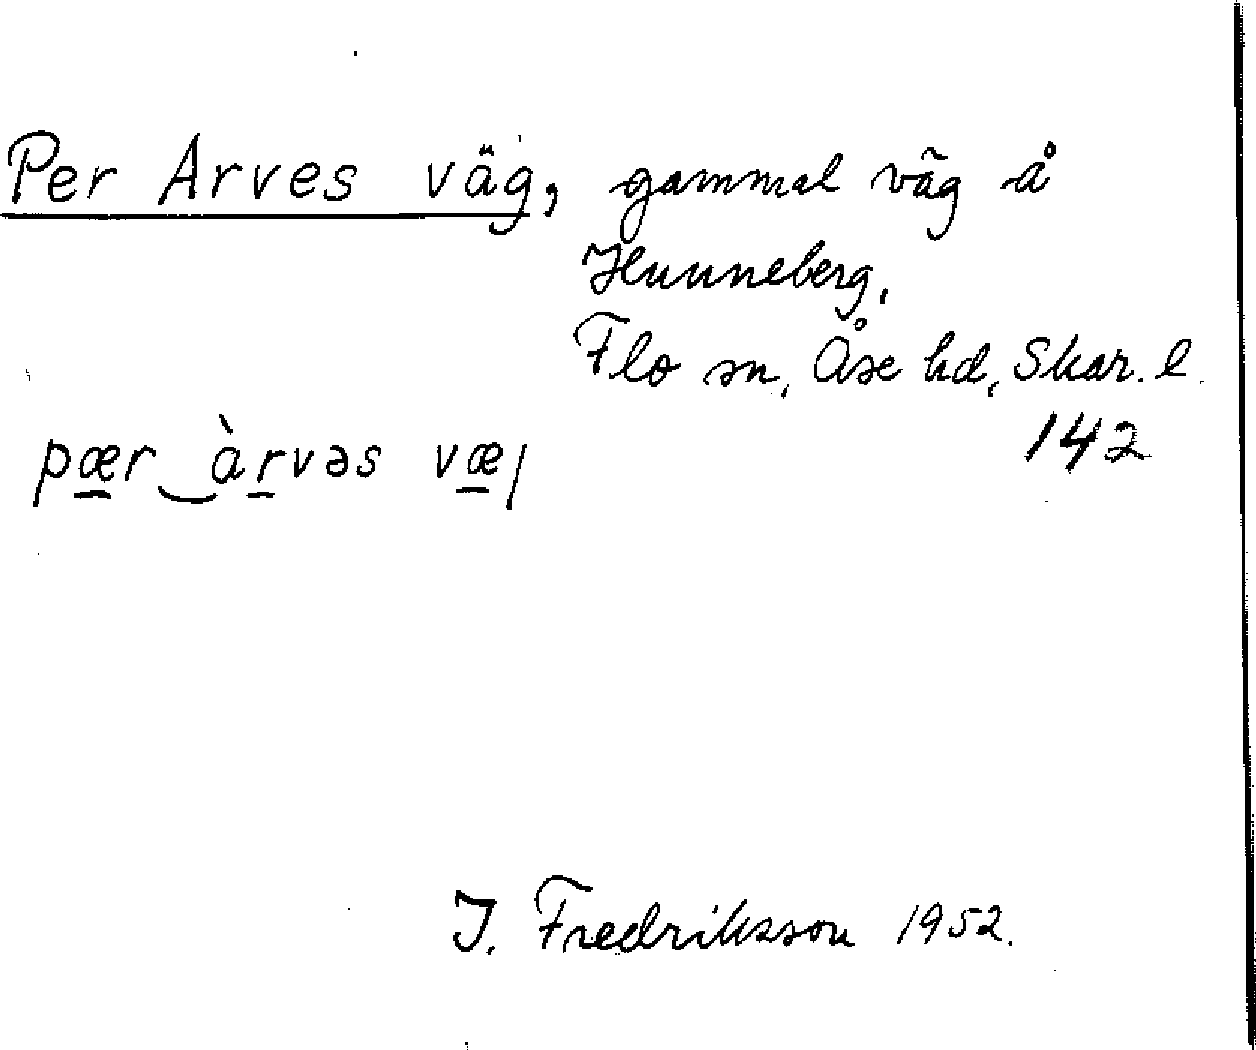 Per Arves väg, gammal väg å
Hunneberg,
Flo sn, Åse hd, Skar. l.
142
pær‿àrvəs væj
I. Fredriksson 1952.